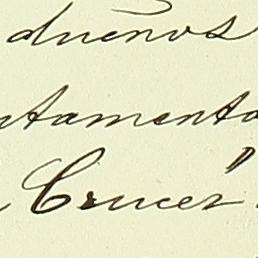 dueños
ntamento
Cruces"